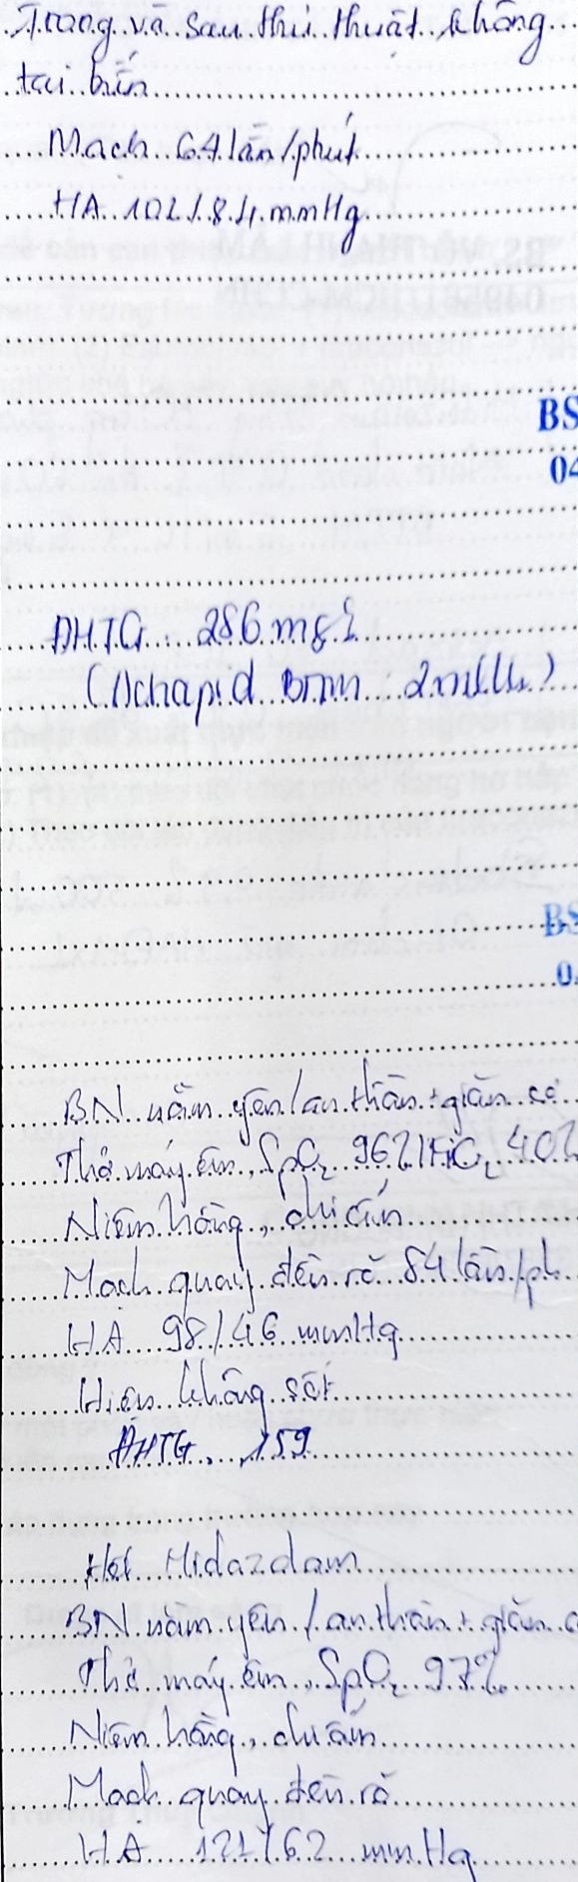 Trong và sau thủ thuật không
tai biến
Mạch 64 lần/phút
HA 102/84 mmHg
BS
04
ĐHTG: 286 mg%
(Actrapid bơm
BS
0
BN nằm yên/an thần + giãn cơ
Thở máy êm, SpO2 96%/FiO2 40%
Niêm hồng, chi ấm
Mạch quay đều rõ 84 lần/ph
HA 98/46 mmHg
Hiện không sốt
ĐHTG 159
Hết Midazolam
BN nằm yên/an thần + giãn c
Thở máy êm, SpO2 97%
Niêm hồng, chi ấm
Mạch quay đều rõ
HA 121/62 mmHg